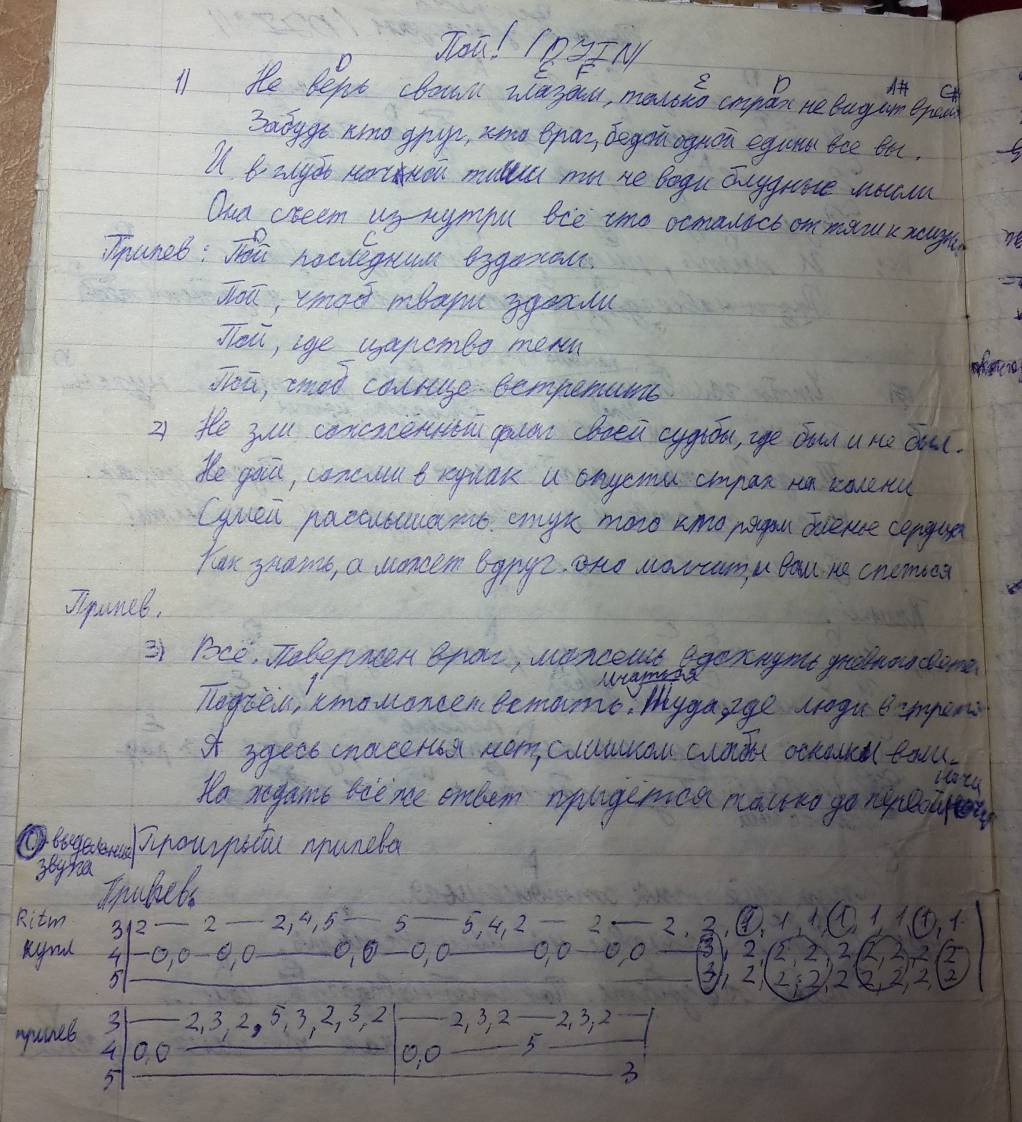 Пой! (DJIN)
D E F E D A# C#
1) Не верь своим глазам, только страх не видит время
Забудь кто друг, кто враг, бедой одной едины все вы.
И в глубь ночной тиши ты не води блудные мысли
Она съест изнутри всё что осталось от тяги к жизни.
D C
Припев: Пой последним вздохом.
Пой, чтоб твари здохли
Пой, где царство тени
Пой, чтоб солнце встретить
2) Не зли сожжённый флаг своей судьбы, где был и не был.
Не дай, сожми в кулак и опусти страх на колени
Сумей расслышать стук того кто рядом биенье сердца
Как знать, а может вдруг оно молчит, и вам не спеться
Припев.
3) Всё. Повержен враг, можешь вдохнуть дневного света
мчаться
Подъём, кто может встать. Туда, где люди
А здесь спасенья нет, слишком слабы осколки воли
ночи
Но ждать всё же ответ прыдётся только до первой
- выделение звука
Проигрыш припева
Припев.
Ritm
купл
3 2 — 2 — 2,4,5 — 5 — 5,4,2 — 2 — 2, 2, 1, 1, 1, 1, 1, 1, 1, 1.
4 — 0,0 — 0,0 — 0,0 — 0,0 — 0,0 — 0,0 — 3, 2, 2, 2, 2, 2, 2, 2, 2
5 — 3, 2, 2, 2, 2, 2, 2, 2, 2
припев
3 — 2,3,2, 5,3,2,3,2 | — 2,3,2 — 2,3,2 —
4 0,0 — | 0,0 — 5 —
5 — 3